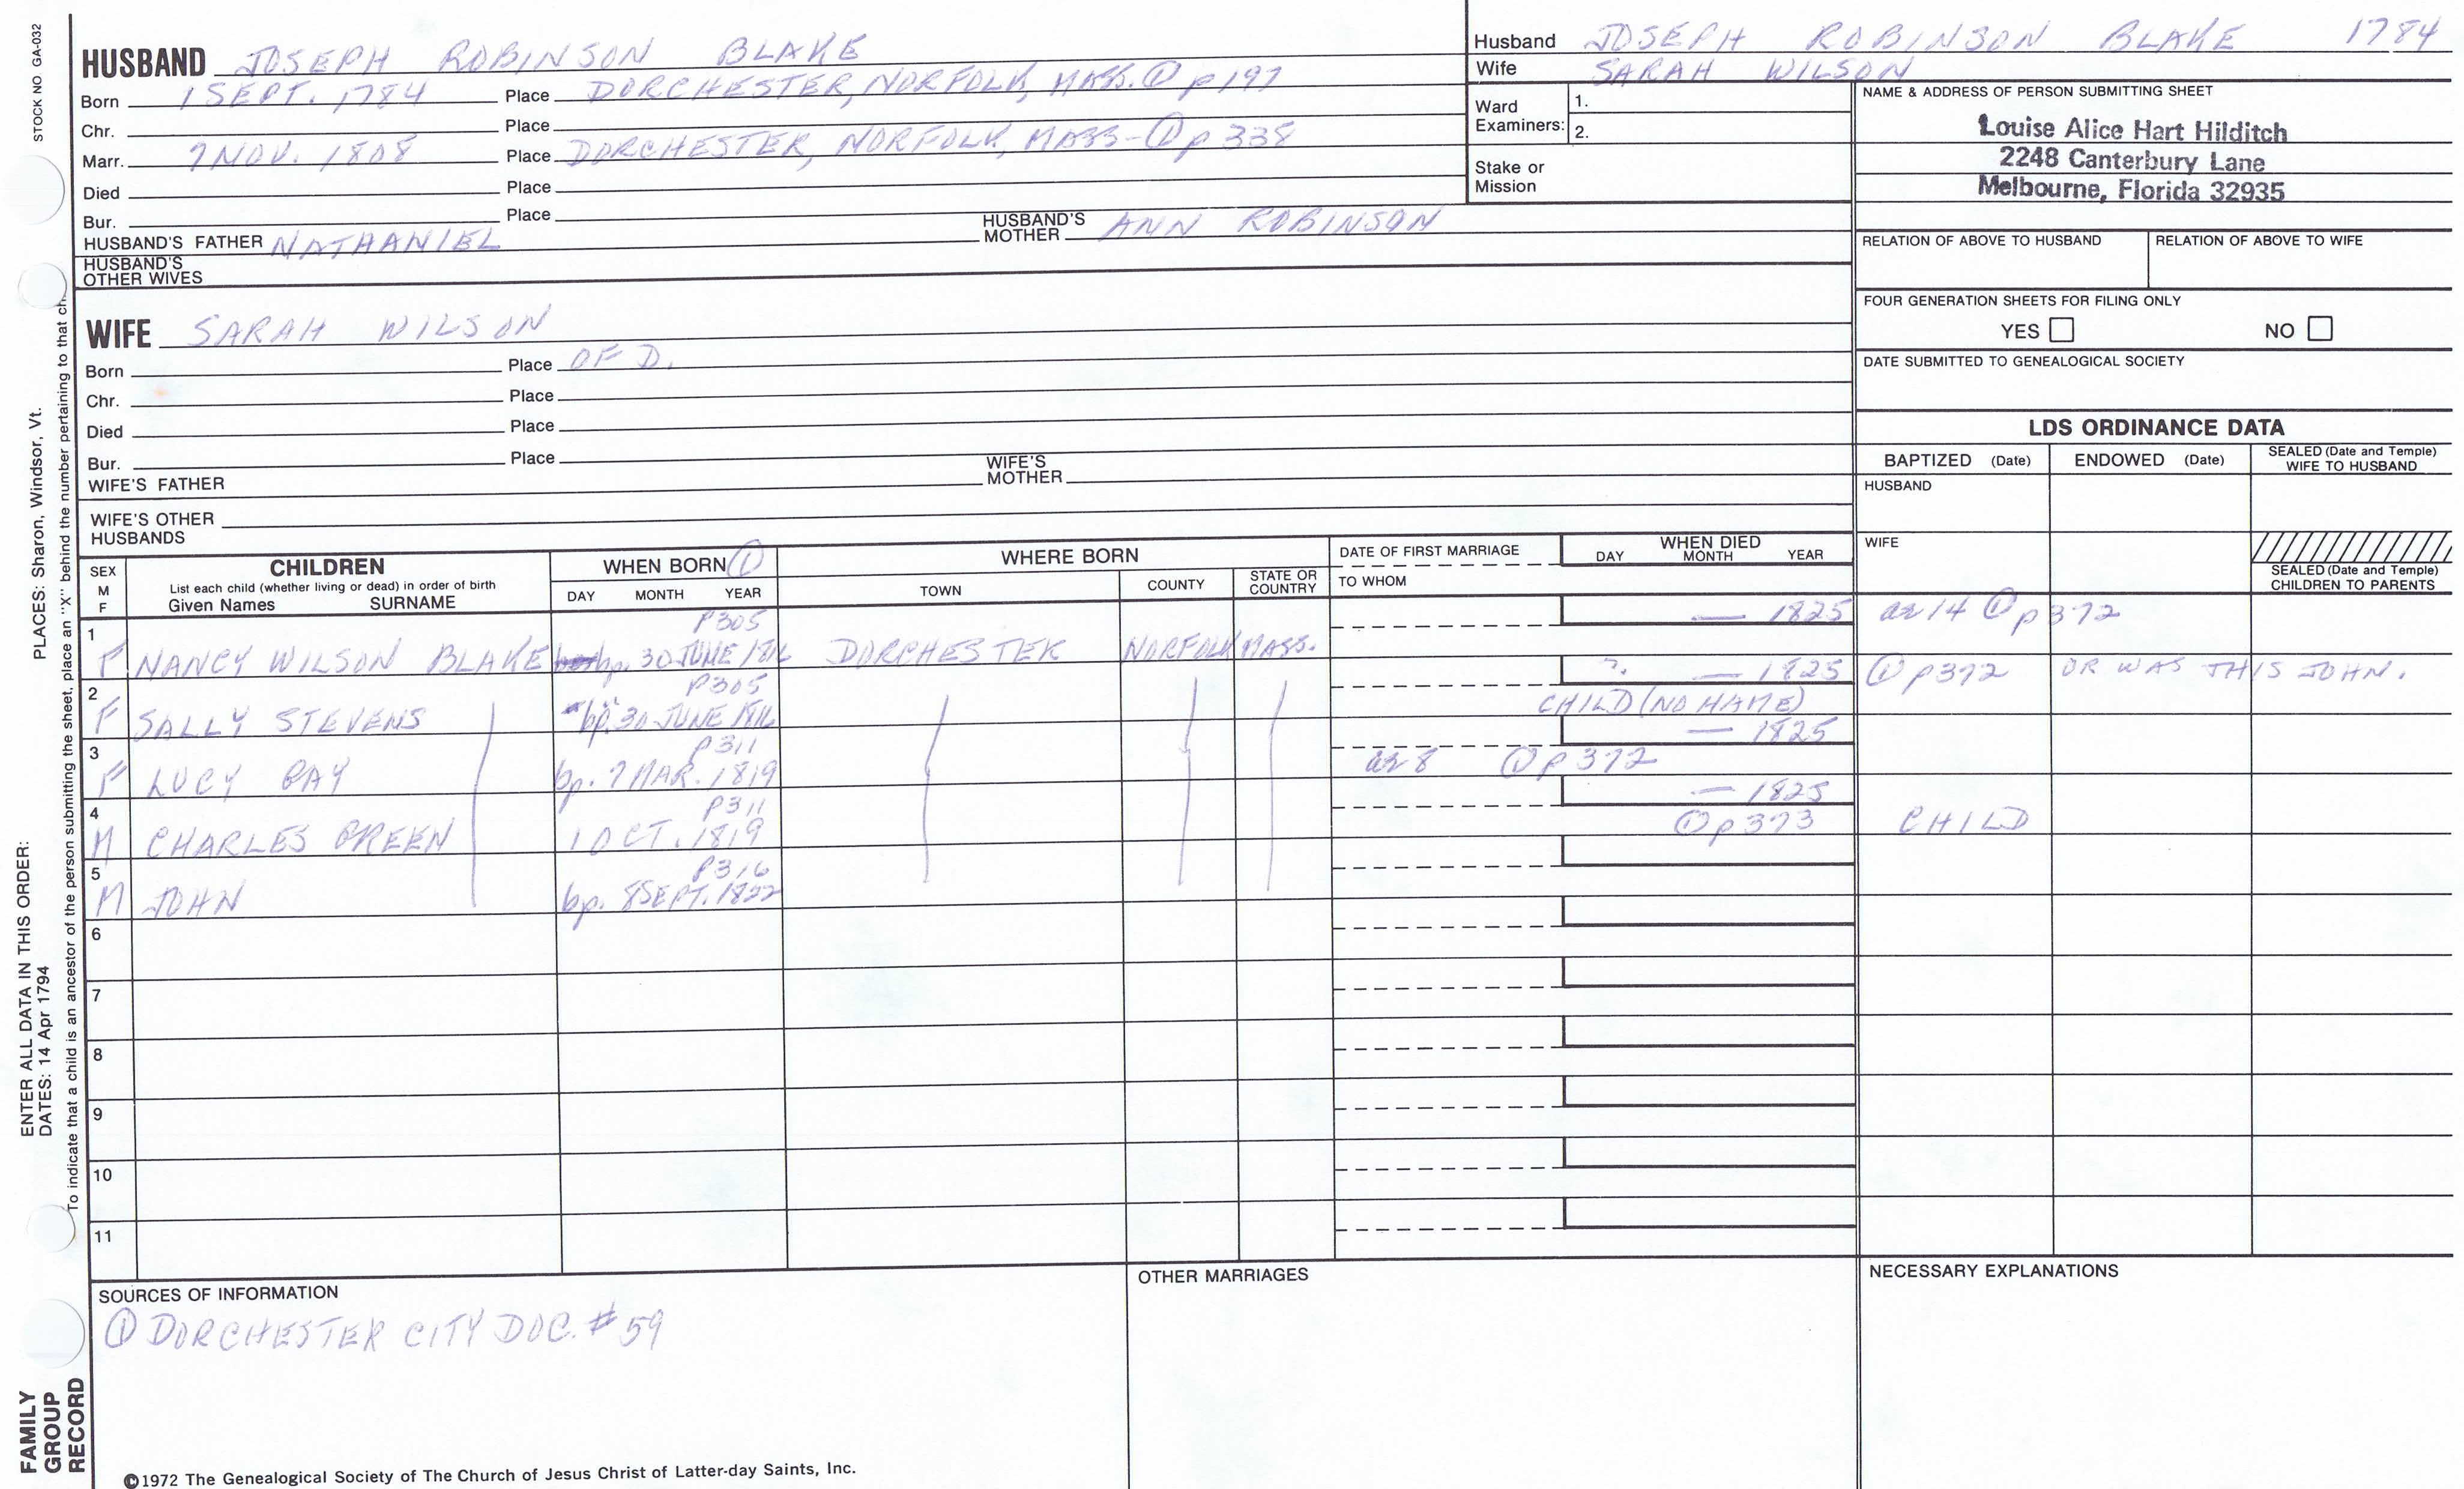 STOCK NO GA-032
PLACES: Sharon, Windsor, Vt.
ENTER ALL DATA IN THIS ORDER:
DATES: 14 Apr 1794
To indicate that a child is an ancestor of the person submitting the sheet, place an "X" behind the number pertaining to that ch
FAMILY GROUP RECORD
HUSBAND JOSEPH ROBINSON BLAKE
Born 1 SEPT. 1784 Place DORCHESTER, NORFOLK, MASS. ① p 197
Chr. Place
Marr. 7 NOV. 1808 Place DORCHESTER, NORFOLK, MASS - ① p 338
Died Place
Bur. Place
HUSBAND'S FATHER NATHANIEL HUSBAND'S MOTHER ANN ROBINSON
HUSBAND'S OTHER WIVES
WIFE SARAH WILSON
Born Place OF D.
Chr. Place
Died Place
Bur. Place
WIFE'S FATHER WIFE'S MOTHER
WIFE'S OTHER HUSBANDS
Husband JOSEPH ROBINSON BLAKE 1784
Wife SARAH WILSON
Ward Examiners: 1.
2.
Stake or Mission
NAME & ADDRESS OF PERSON SUBMITTING SHEET
Louise Alice Hart Hilditch
2248 Canterbury Lane
Melbourne, Florida 32935
RELATION OF ABOVE TO HUSBAND RELATION OF ABOVE TO WIFE
FOUR GENERATION SHEETS FOR FILING ONLY
YES NO
DATE SUBMITTED TO GENEALOGICAL SOCIETY
LDS ORDINANCE DATA
BAPTIZED (Date) ENDOWED (Date) SEALED (Date and Temple) WIFE TO HUSBAND
HUSBAND
WIFE
SEALED (Date and Temple) CHILDREN TO PARENTS
SEX M F CHILDREN WHEN BORN ① WHERE BORN DATE OF FIRST MARRIAGE WHEN DIED
List each child (whether living or dead) in order of birth
Given Names SURNAME DAY MONTH YEAR TOWN COUNTY STATE OR COUNTRY TO WHOM DAY MONTH YEAR
1 P305 — 1825 ae 14 ① p 372
F NANCY WILSON BLAKE bp. 30 JUNE 1816 DORCHESTER NORFOLK MASS.
2 P305 ?. — 1825 ① p 372 OR WAS THIS JOHN.
F SALLY STEVENS bp. 30 JUNE 1816 CHILD (NO NAME)
3 P311 — 1825
F LUCY bp. 7 MAR. 1819 ae 8 ① p 372
4 P311 — 1825
M CHARLES GREEN 1 OCT. 1819 ① p 373 CHILD
5 P316
M JOHN bp. 8 SEPT. 1822
6
7
8
9
10
11
SOURCES OF INFORMATION
① DORCHESTER CITY DOC. # 59
OTHER MARRIAGES
NECESSARY EXPLANATIONS
©1972 The Genealogical Society of The Church of Jesus Christ of Latter-day Saints, Inc.